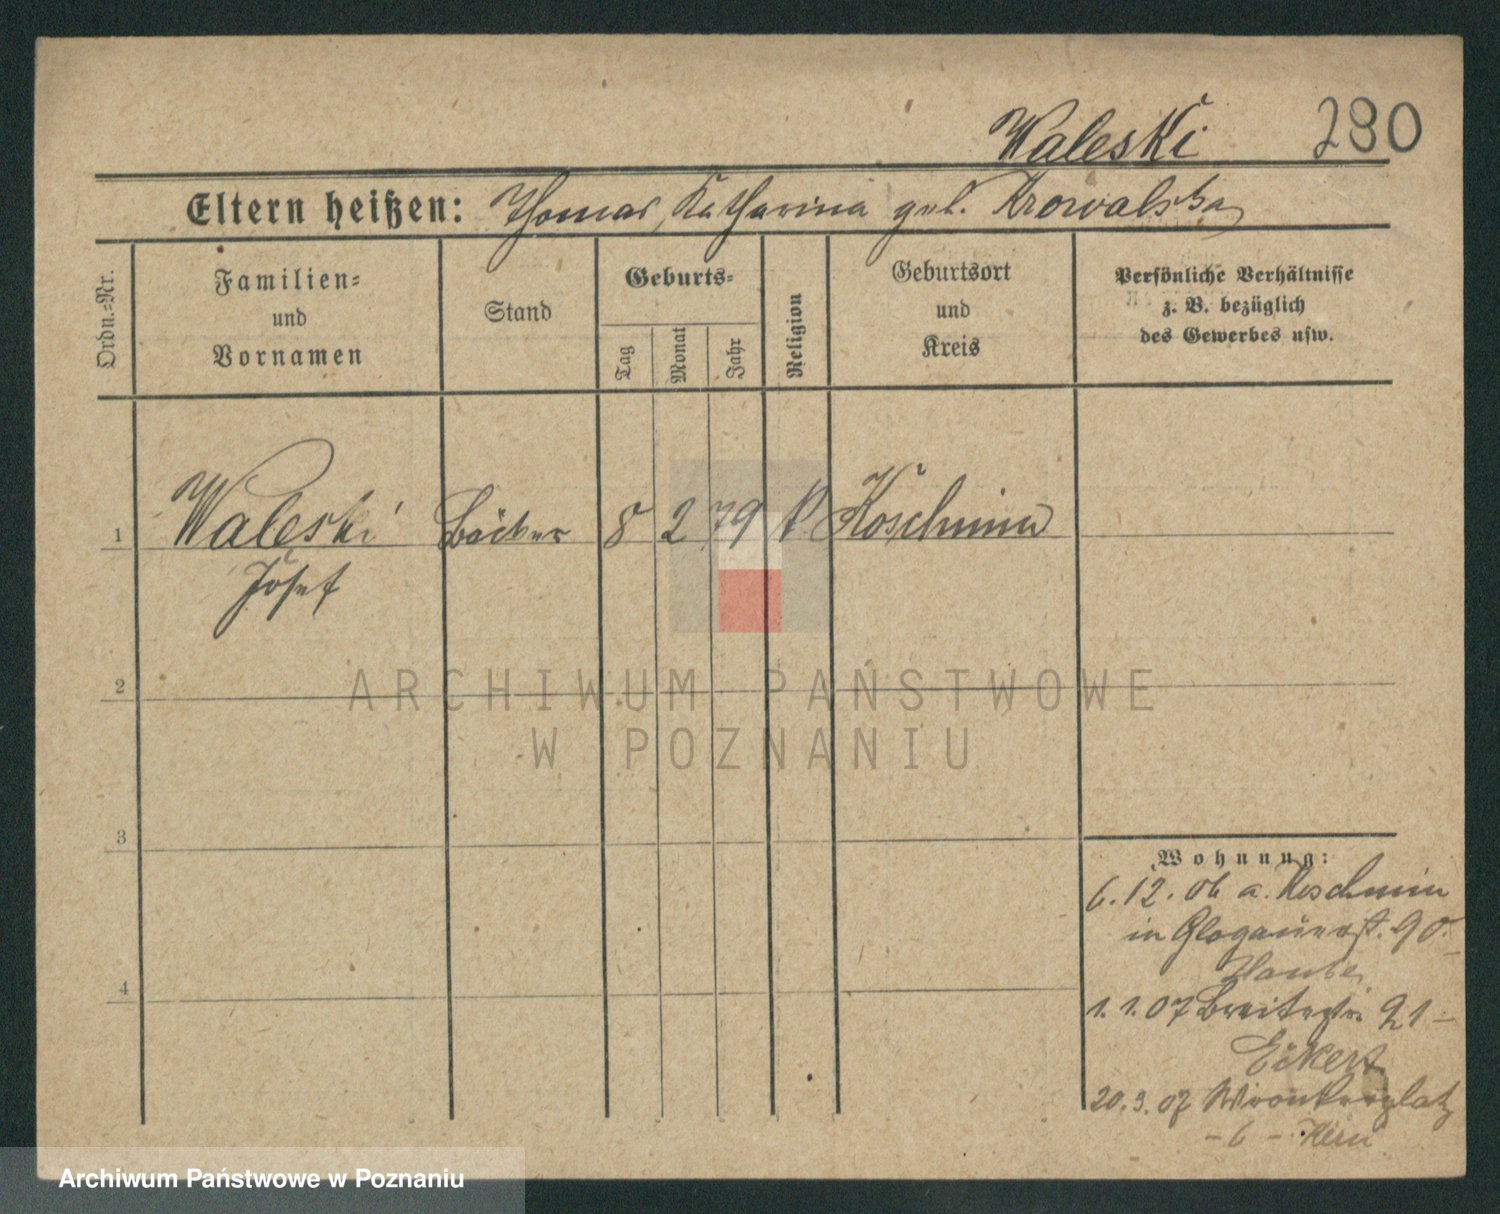 Waleski 280
Eltern heißen: Thomas, Katharina geb. Krowalska
Ordn.=Nr.
Familien=
und
Vornamen
Stand
Geburts=
Tag
Monat
Jahr
Religion
Geburtsort
und
Kreis
Persönliche Verhältnisse
z. B. bezüglich
des Gewerbes usw.
1 Waleski Bäcker 8 2 79 k Koschmin
Josef
2
3
4
Wohnung:
6. 12. 06 a. Koschmin
in Glogauerst. 90.
1. 1. 07 Breitestr. 21 –
Eckert
20. 3. 07 Wronkerplatz
– 6 – Kern
ARCHIWUM PAŃSTWOWE
W POZNANIU
Archiwum Państwowe w Poznaniu